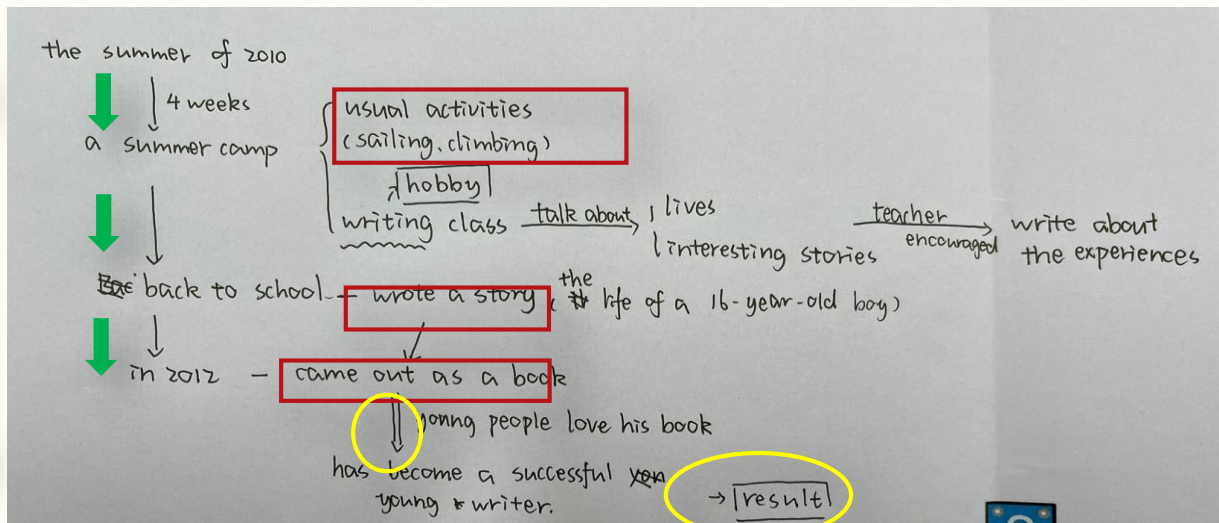 the summer of 2010
4 weeks
a summer camp
usual activities
(sailing、climbing)
hobby
writing class
talk about
lives
interesting stories
teacher
encouraged
write about
the experiences
back to school
wrote a story
(the life of a 16-year-old boy)
in 2012 - came out as a book
young people love his book
has become a successful
young writer.
→ result